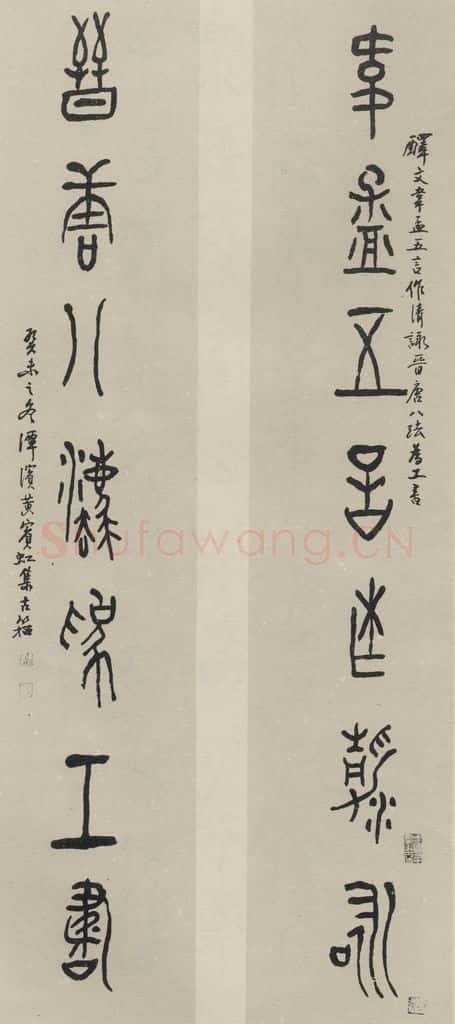 釋文韋孟五言作清詠晉唐八法為工書
韋孟五言作清詠
晉唐八法為工書
癸未之冬潭濱黃賓虹集古籀
Shufawang.CN